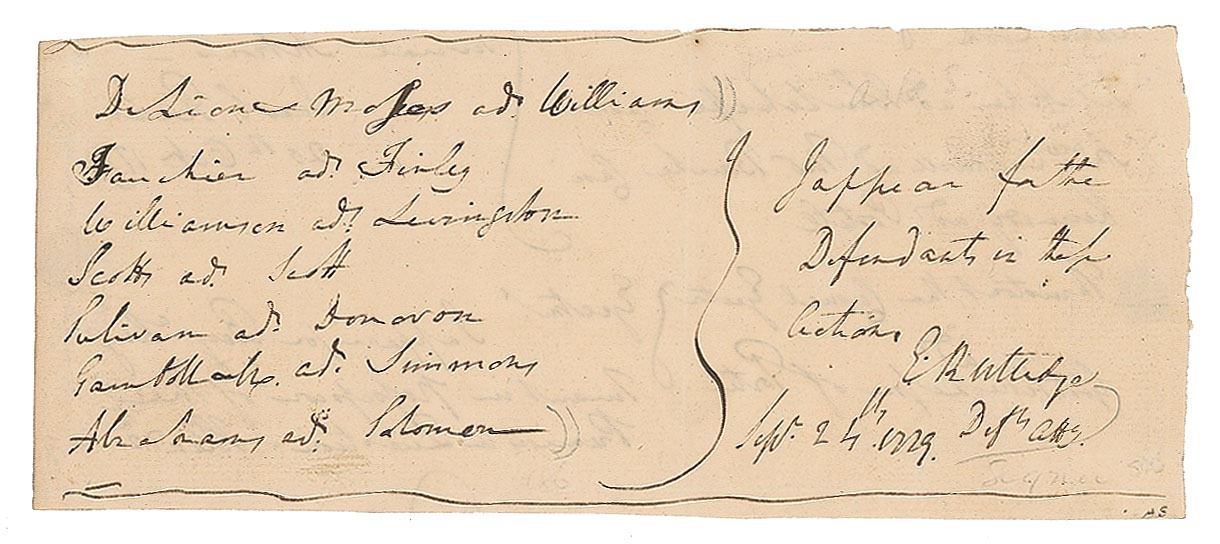 DeLeone Moses ads. Williams
Fauchier ads. Finley
Williamson ads. Levingston
Scotts ads. Scott
Sulivan ads. Donovon
ads. Simmons
Abrahams ads. Solomon
I appear for the
Defendants in these
Actions
E. Rutledge
Sept. 24th. 1779. Defts Atty.